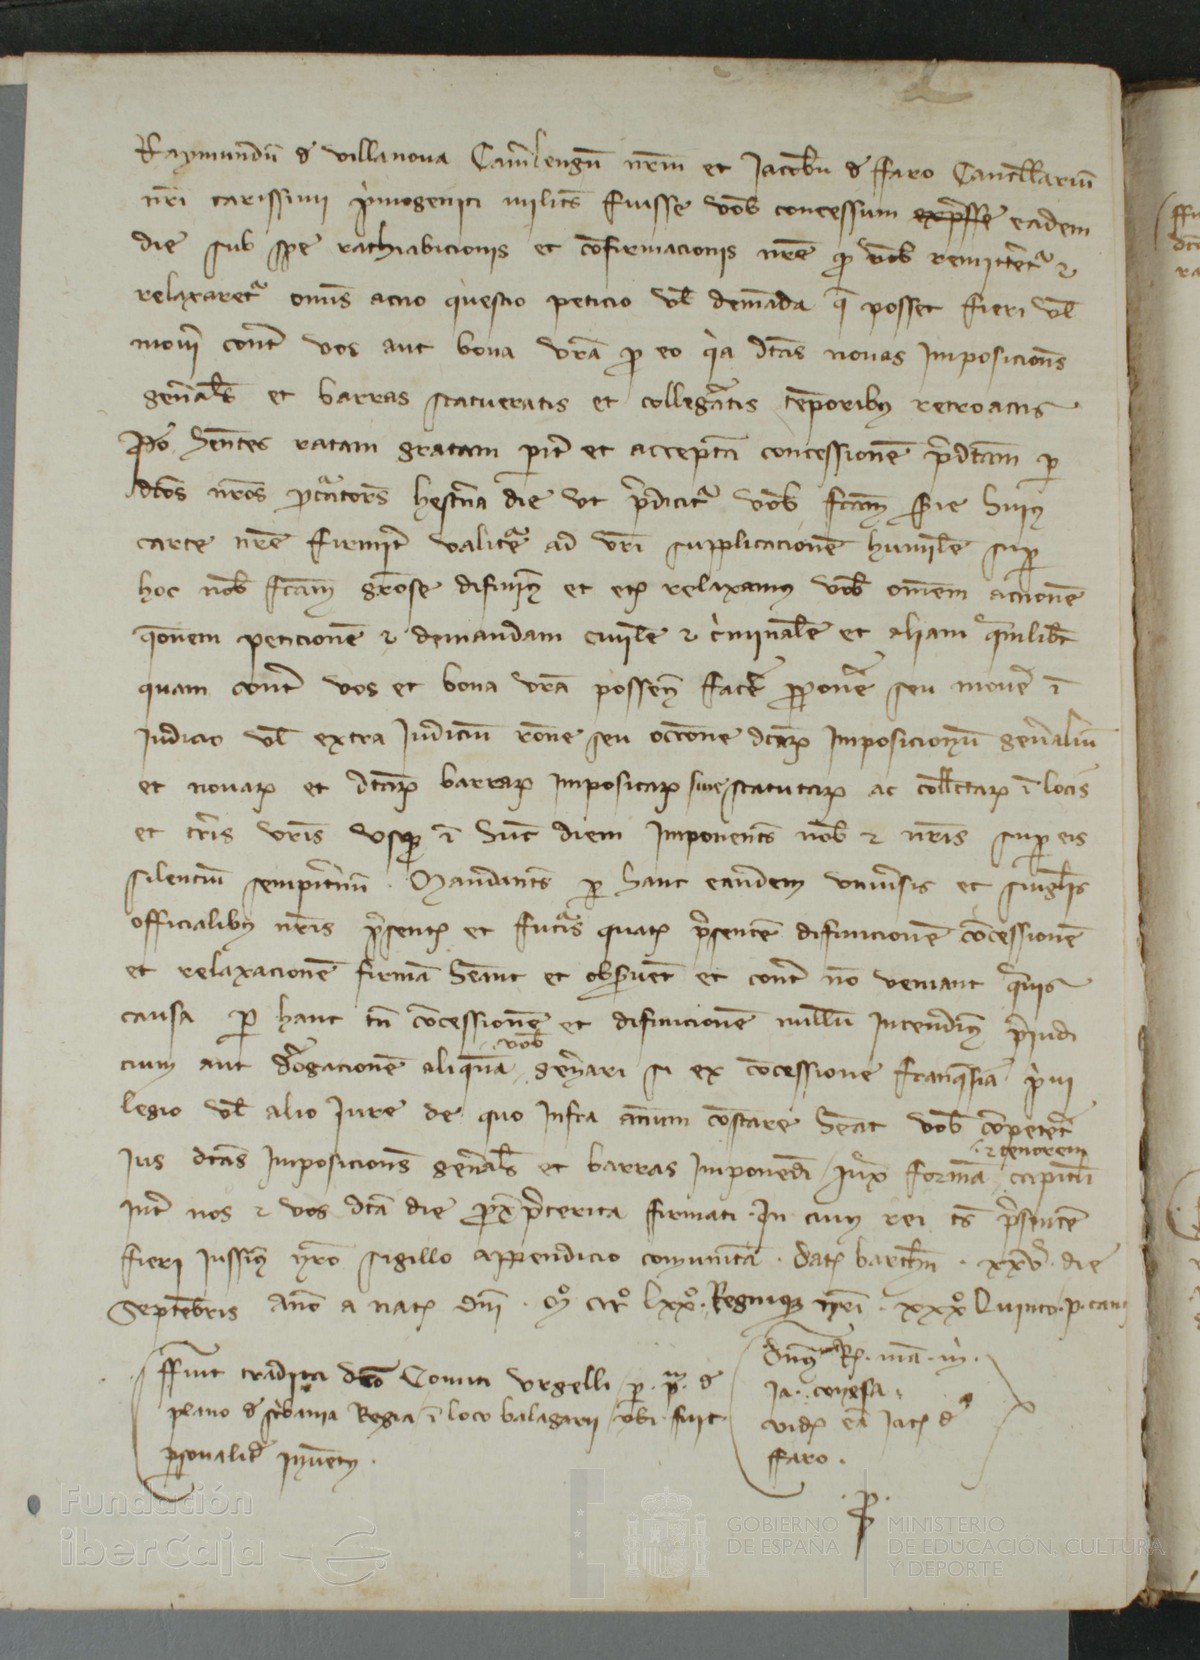 Raymundū d villanova Cam̄lengū nr̄m et Jacobū d ffaro Cancellariū
nr̄i carissimi p̄mogeniti milit̄s fuisse vob̄ concessum exp̄sse eadem
die sub spe rathiabicionis et cōfirmacionis nr̄e qd̄ vob̄ remittet̄ &
relaxaret̄ om̄is actio questio peticio vl̄ demāda q̄ posset fieri vl̄
mov̄i cont̄ vos aut bona vr̄a p̄ eo q̄a dtās novas Imposicion̄s
gen̄al̄s et barras statueratis et collegr̄atis tēporibȝ retroactis
hēntes ratam gratam pit̄ et acceptā concessionē p̄dtām p
dtōs nr̄os p̄cutor̄s hest̄na die ut p̄dicit̄ vob̄ fcām huiȝ
carte nr̄e firmit̄ valit̄a ad vr̄i supplicacionē humil̄e sup̄
hoc nob̄ fcām gr̄ose difinimȝ et etȝ relaxamȝ vob̄ om̄em accionē
q̄onem peticionē & demandam civil̄e & c̄minal̄e et aliam q̄mlib̄t
quam cont̄ vos et bona vr̄a possem̄ fac̄e p̄pon̄e seu mov̄e ī
Judicio vl̄ extra Judiciū rōne seu occōne dcāȝ Imposicionū gen̄aliū
et novaȝ et dtāȝ barraȝ Impositaȝ sive statutaȝ ac coll̄ctaȝ ī locis
et t̄ris vr̄is usq̄ ī hūc diem Imponent̄s nob̄ & nr̄is sup̄ eis
silenciū sempit̄nū . Mandant̄s p hanc eandem univ̄sis et singul̄is
officialibȝ nr̄is p̄sentȝ et futur̄is quatȝ p̄sentē difinicionē cōcessionē
et relaxacionē firmā hēant et obs̄vent et cont̄ nō veniant q̄vis
causa p hanc tn̄ cōcessionē et difinicionē nullū Intendimȝ p̄iudi
cium aut d̄ogacionē aliquā vob̄ gen̄ari si ex cōcessione franq̄sia p̄vi
legio vl̄ alio Jure de quo Infra annum cōstare hēat vob̄ cōpetet̄
Jus dtās Imposicion̄s gen̄al̄s et barras Imponēdi Juxȝ formā & tenorem capitl̄i
Int̄ nos & vos dtā die p̄x p̄terita firmati . In cuiȝ rei ts̄ p̄sentē
fieri Jussimȝ nr̄o sigillo appendicio comunitā . Datȝ barchn̄ . xxv . die
Septēbris Anō a natȝ dnī . Mº CCCº lxxº . Regniq̄ nr̄i . xxxº Quinto . p . canc
ffuit tradita dcō Comiti Urgelli p . p̄. d
plano d sc̄bania Regia ī loco balagarii ubi fuit
p̄sonalit̄ Invētȝ .
Dn̄s Rȝ . mā . m̄ .
Ja . conesa .
vidȝ eā Jacȝ d
ffaro .
. p̄ .
Fundación
iberCaja
GOBIERNO
DE ESPAÑA
MINISTERIO
DE EDUCACIÓN, CULTURA
Y DEPORTE